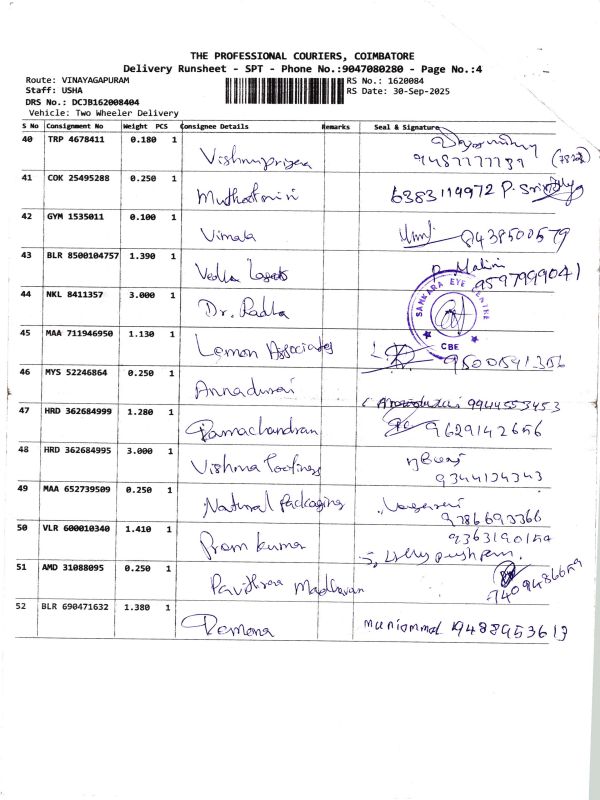 THE PROFESSIONAL COURIERS, COIMBATORE
Delivery Runsheet - SPT - Phone No.:9047080280 - Page No.:4
Route: VINAYAGAPURAM RS No.: 1620084
Staff: USHA RS Date: 30-Sep-2025
DRS No.: DCJB162008404
Vehicle: Two Wheeler Delivery
S No Consignment No Weight PCS Consignee Details Remarks Seal & Signature
40 TRP 4678411 0.180 1
Vishnupriya 9487777739
41 COK 25495288 0.250 1
6383114972 P.
42 GYM 1535011 0.100 1
Vimala 8438500579
43 BLR 8500104757 1.390 1
P. Malini
Vedha 9597999041
44 NKL 8411357 3.000 1
Dr. Radha SANKARA EYE CENTRE CBE
45 MAA 711946950 1.130 1
Lemon Associates
46 MYS 52246864 0.250 1
Annadurai 9944553453
47 HRD 362684999 1.280 1
Ramachandran 9629142656
48 HRD 362684995 3.000 1
Vishma 9344134343
49 MAA 652739509 0.250 1
Natural Packaging 9786693366
50 VLR 600010340 1.410 1
Prem kumar
51 AMD 31088095 0.250 1
Pavithra Madhavan
52 BLR 690471632 1.380 1
Remona muniammal 9488953613